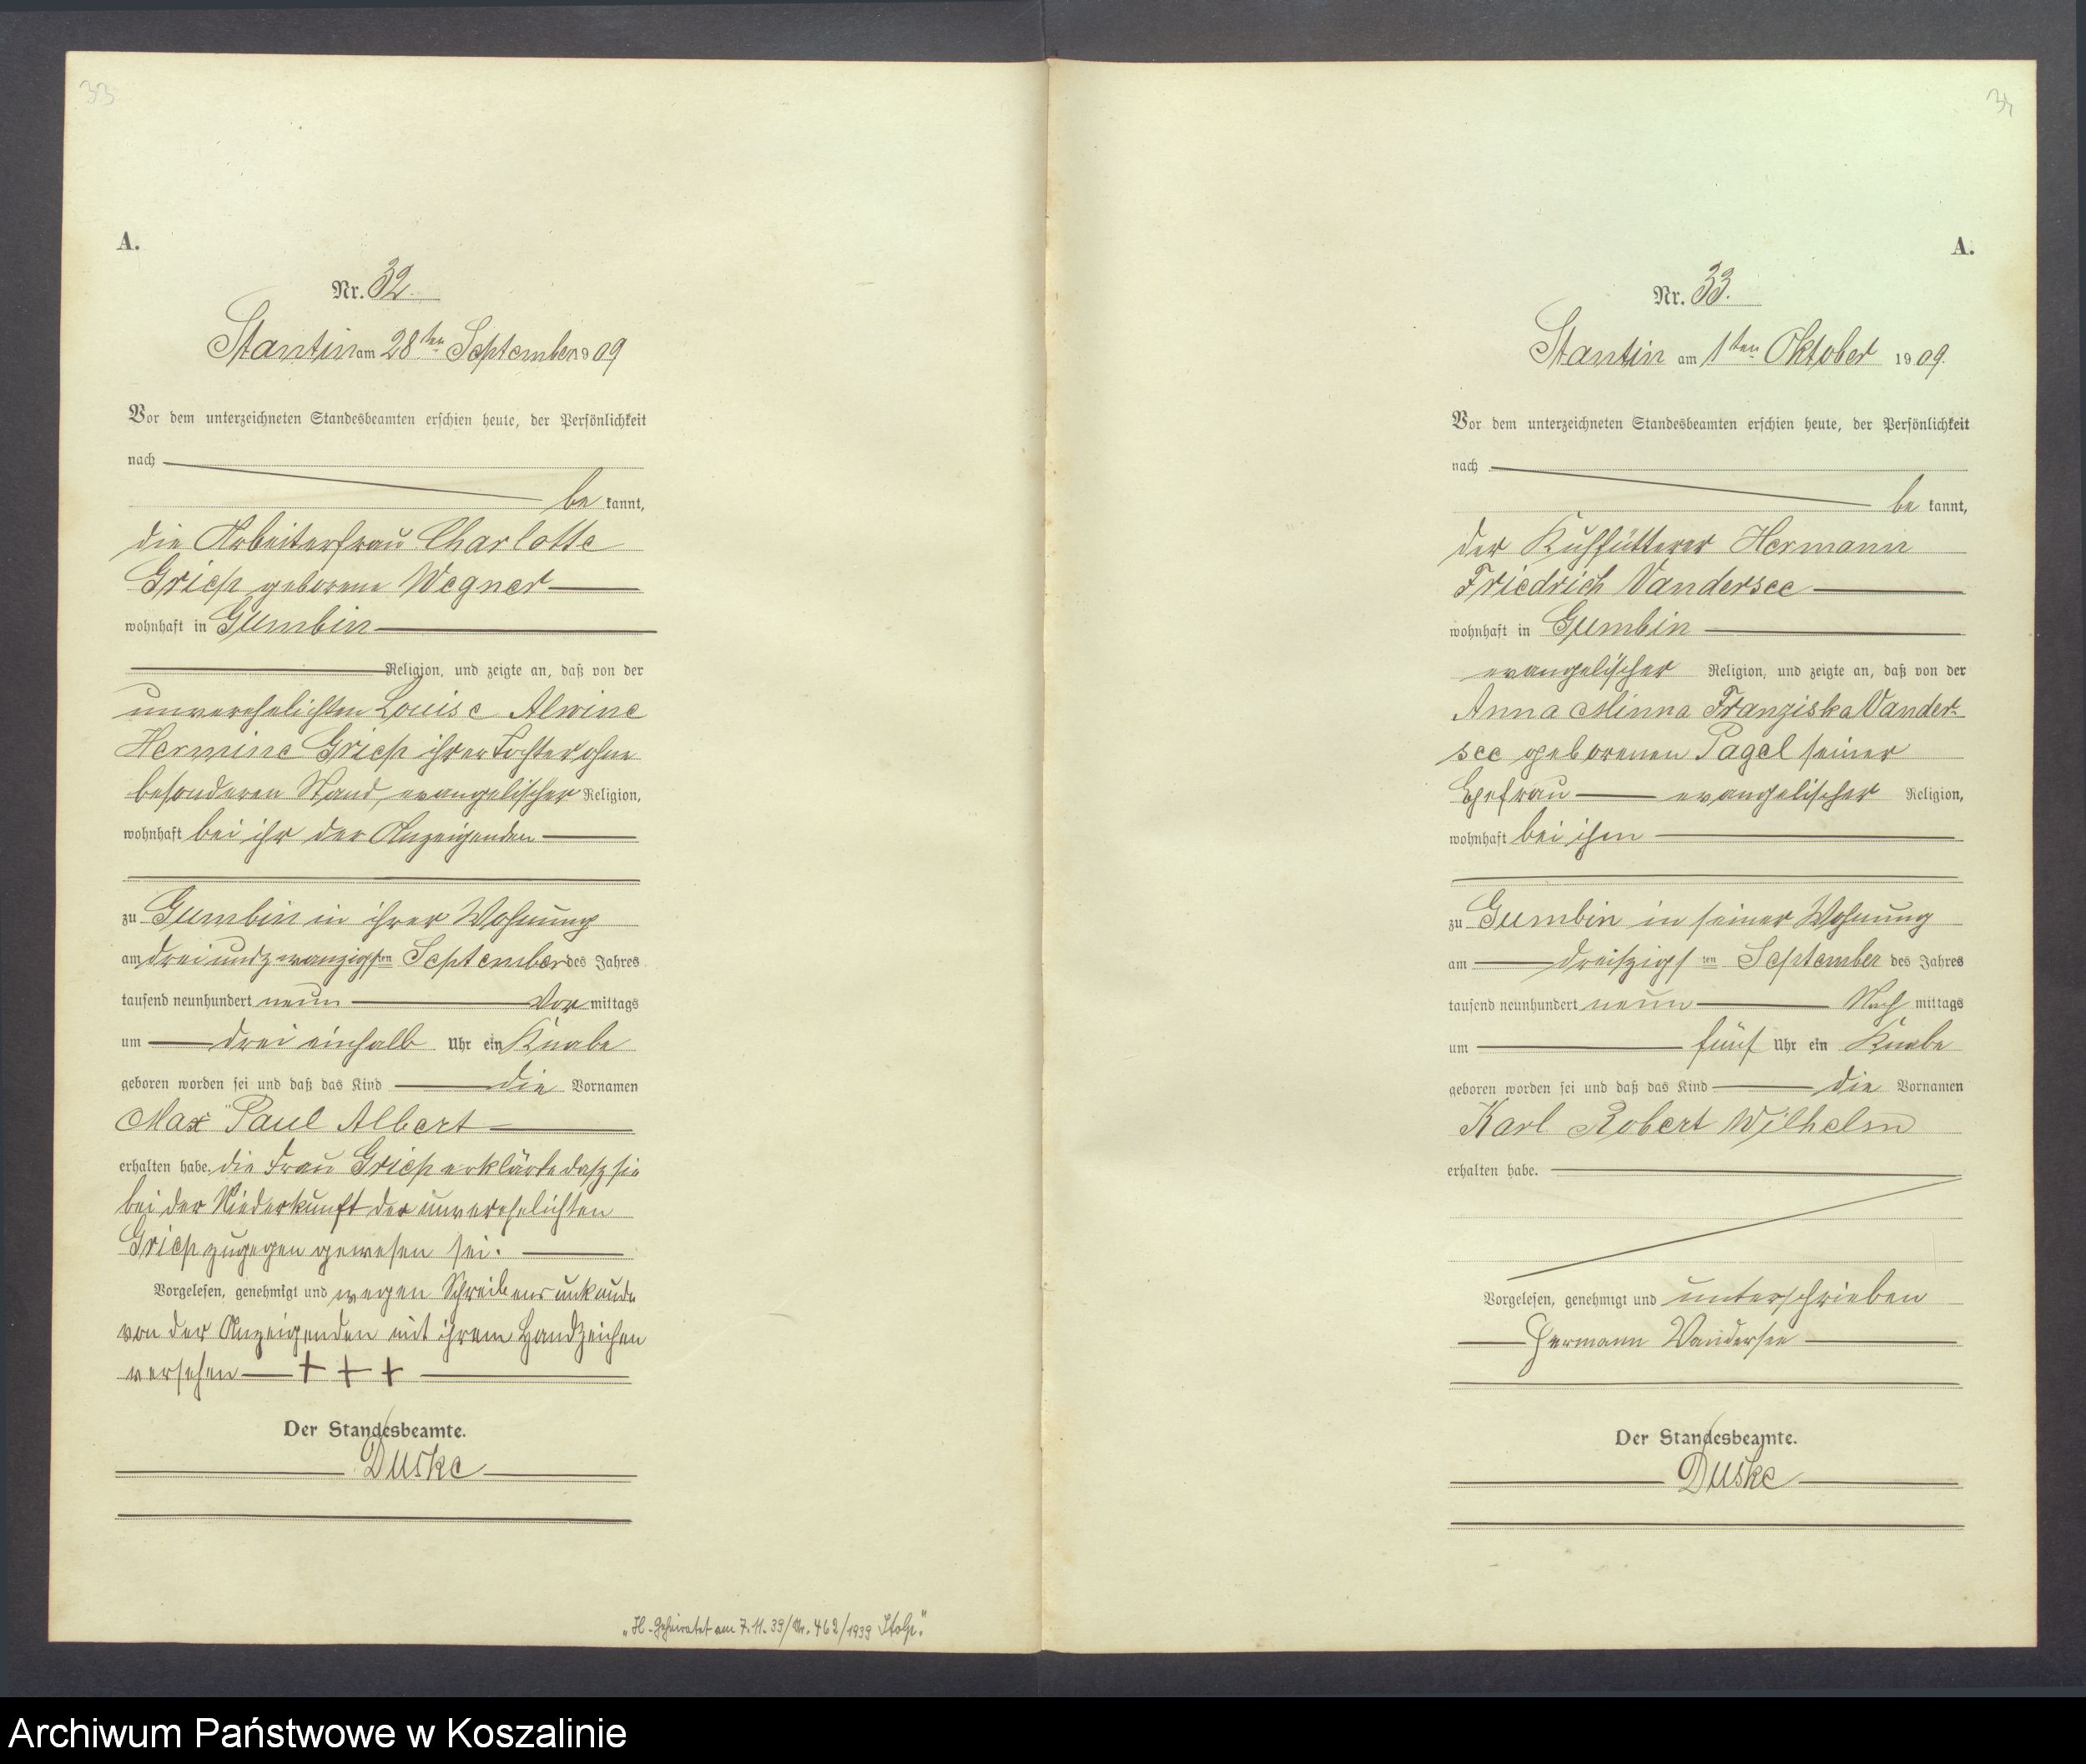 33
A.
Nr. 32.
Stantin am 28ten September 1909
Vor dem unterzeichneten Standesbeamten erschien heute, der Persönlichkeit
nach
be kannt,
die Arbeiterfrau Charlotte
Griep geborene Wegner
wohnhaft in Gumbin
Religion, und zeigte an, daß von der
unverehelichten Louise Alwine
Hermine Griep ihrer Tochter ohne
besonderen Stand, evangelischer Religion,
wohnhaft bei ihr der Anzeigenden
zu Gumbin in ihrer Wohnung
am dreiundzwanzigsten September des Jahres
tausend neunhundert neun Vor mittags
um drei einhalb Uhr ein Knabe
geboren worden sei und daß das Kind die Vornamen
Max Paul Albert
erhalten habe. die Frau Griep erklärte dasz sie
bei der Niederkunft der unverehelichten
Griep zugegen gewesen sei.
Vorgelesen, genehmigt und wegen Schreibensunkunde
von der Anzeigenden mit ihrem Handzeichen
versehen + + +
Der Standesbeamte.
Duske
„H.-Geheiratet am 7.11.39/Nr. 462/1939 Stolp."
34
A.
Nr. 33.
Stantin am 1ten Oktober 1909.
Vor dem unterzeichneten Standesbeamten erschien heute, der Persönlichkeit
nach
be kannt,
der Kuhfütterer Hermann
Friedrich Vandersee
wohnhaft in Gumbin
evangelischer Religion, und zeigte an, daß von der
Anna Minna Franziska Vander-
see geborenen Pagel seiner
Ehefrau evangelischer Religion,
wohnhaft bei ihm
zu Gumbin in seiner Wohnung
am dreiszigsten September des Jahres
tausend neunhundert neun Nach mittags
um fünf Uhr ein Knabe
geboren worden sei und daß das Kind die Vornamen
Karl Robert Wilhelm
erhalten habe.
Vorgelesen, genehmigt und unterschrieben
Hermann Vandersee
Der Standesbeamte.
Duske
Archiwum Państwowe w Koszalinie